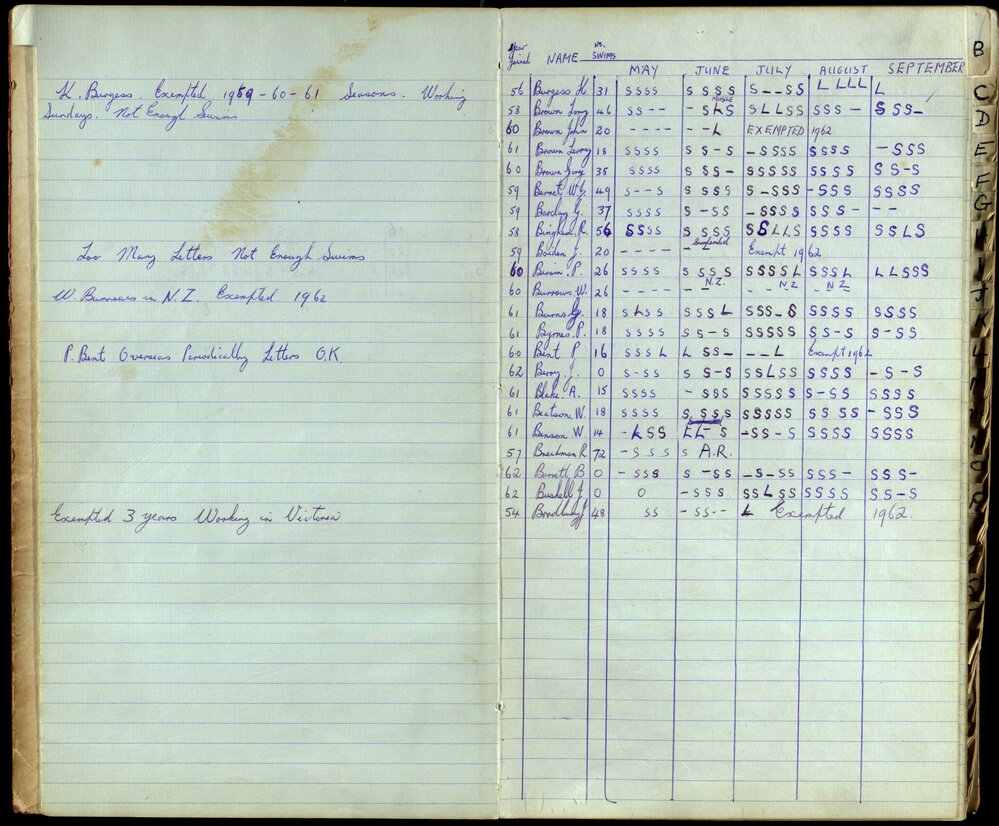 K. Burgess. Exempted 1959-60-61 Seasons. Working
Sundays. Not Enough Swims
Too Many Letters Not Enough Swims
W Burrows in N.Z. Exempted 1962
P. Bent Overseas Periodically Letters O.K.
Exempted 3 years Working in Victoria
Year Joined NAME No. SWIMS MAY JUNE JULY AUGUST SEPTEMBER
56 Burgess K. 31 SSSS SSSS S--SS LLLL L
58 Brown Tony 46 SS-- -SLS SLLSS SSS- SSS-
60 Brown John 20 ---- --L EXEMPTED 1962.
61 Brown 18 SSSS SS-S -SSSS SSSS -SSS
60 Brown 35 SSSS SSS- SSSSS SSSS SS-S
59 Barnet W. 49 S--S SSSS S-SSS -SSS SSSS
59 Barclay G. 37 SSSS S-SS -SSSS SSS- --
58 Bingham R. 56 SSSS SSSS SSLLS SSSS SSLS
59 J. 20 ---- Suspended -L Exempt 1962
60 P. 26 SSSS SSSS SSSSL SSSL LLSSS
60 Burrows W. 26 ---- N.Z. -- N.Z -- N.Z --
61 Burns G. 18 SLSS SSSL SSS-S SSSS SSSS
61 Byrnes P. 18 SSSS SS-S SSSSS SS-S S-SS
60 Bent P 16 SSSL LSS- --L Exempt 1962
62 Berry J. 0 S-SS SS-S SSLSS SSSS -S-S
61 Blake A. 15 SSSS -SSS SSSSS S-SS SSSS
61 Beatson W. 18 SSSS SSSS SSSSS SSSS -SSS
61 Benson W. 14 -LSS Suspended LL-S -SS-S SSSS SSSS
57 R. 72 -SSS S A.R.
62 Burnett B 0 -SSS S-SS -S-SS SSS- SSS-
62 Bushell J. 0 O -SSS SSLSS SSSS SS-S
54 Bradbury J 48 SS -SS-- L Exempted 1962.
B
C
D
E
F
G
H
J
K
L
M
N
O
P
S